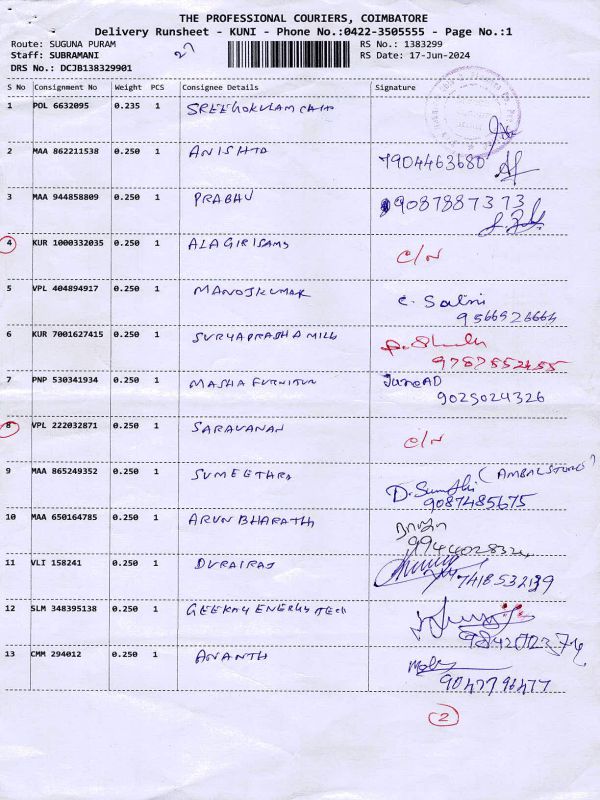 THE PROFESSIONAL COURIERS, COIMBATORE
Delivery Runsheet - KUNI - Phone No.:0422-3505555 - Page No.:1
Route: SUGUNA PURAM
Staff: SUBRAMANI
DRS No.: DCJB138329901
27
RS No.: 1383299
RS Date: 17-Jun-2024
S No Consignment No Weight PCS Consignee Details Signature
1 POL 6632095 0.235 1 SREEGOKULAM
2 MAA 862211538 0.250 1 ANISHTD 7904463680
3 MAA 944858809 0.250 1 PRABHU 9087887373
4 KUR 1000332035 0.250 1 ALAGIRISAMY C/N
5 VPL 404894917 0.250 1 MANOJKUMAR C. Salini
9566926664
6 KUR 7001627415 0.250 1 SURYAPRABHA MILLS
9787552455
7 PNP 530341934 0.250 1 MASHA FURNITUR
9025024326
8 VPL 222032871 0.250 1 SARAVANAN C/N
9 MAA 865249352 0.250 1 SUMEETHRA D. Sumathi (AMBAL STORES)
9087485675
10 MAA 650164785 0.250 1 ARUN BHARATH
11 VLI 158241 0.250 1 DURAIRAJ 7418532139
12 SLM 348395138 0.250 1 ENERGY TECH
13 CMM 294012 0.250 1 ANANTH
9047796477
2